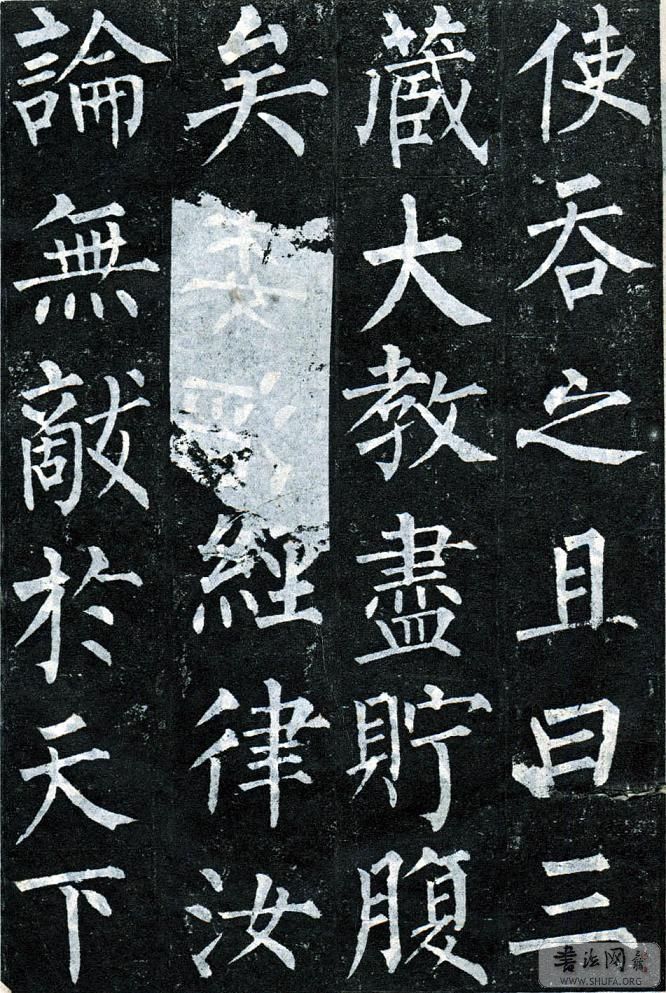 使吞之且曰三
藏大教盡貯腹
矣經律汝
論無敵於天下
书法网
WWW.SHUFA.ORG